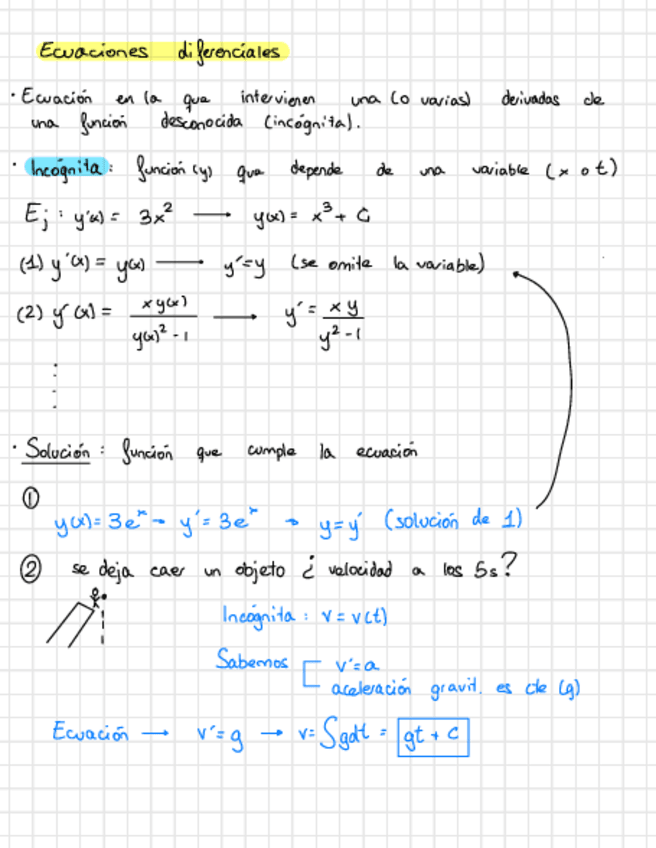 Ecuaciones diferenciales
· Ecuación en la que intervienen una (o varias) derivadas de
una función desconocida (incógnita).
· Incógnita: función (y) que depende de una variable (x o t)
Ej: y'(x) = 3x² → y(x) = x³ + C
(1) y'(x) = y(x) → y' = y (se omite la variable)
(2) y'(x) = x y(x) / y(x)² - 1 → y' = x y / y² - 1
· Solución: función que cumple la ecuación
① y(x) = 3eˣ → y' = 3eˣ → y = y' (solución de 1)
② se deja caer un objeto ¿ velocidad a los 5s?
Incógnita: v = v(t)
Sabemos v' = a
aceleración gravit. es cte (g)
Ecuación → v' = g → v = ∫gdt = gt + C